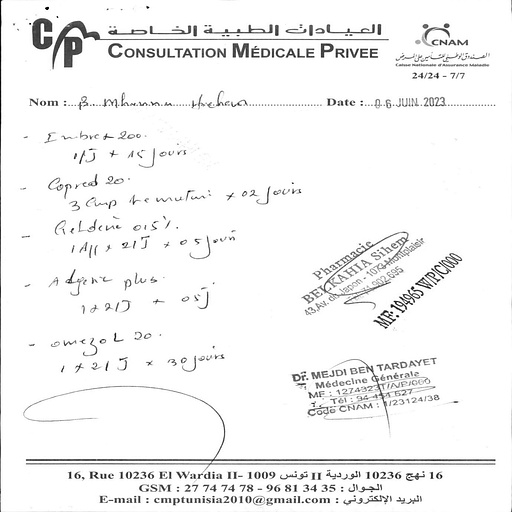 CP
العيادات الطبية الخاصة
CONSULTATION MÉDICALE PRIVEE
CNAM
الصندوق الوطني للتأمين على المرض
Caisse Nationale d'Assurance Maladie
24/24 - 7/7
Nom : B. Date : 06 JUIN 2023
- 200.
1/J + 15 jours
- Copred 20.
3 Cmp le matin x 02 jours
- 0,5%.
1 App x 2/J x 05 jours
- Algesic plus.
1 x 2/J x 05 j
- Omezol 20.
1 x 2/J x 30 jours
Pharmacie
BEL KAHIA Sihem
43, Av. du Japon - 1073 Montplaisir
MF: 194965 W/P/C/000
Dr. MEJDI BEN TARDAYET
Médecine Générale
MF : 1274323T/A/P/000
Tél : 94 454 627
Code CNAM : 1/23124/38
16, Rue 10236 El Wardia II- 1009 16 نهج 10236 الوردية II تونس
GSM : 27 74 74 78 - 96 81 34 35 : الجوال
E-mail : cmptunisia2010@gmail.com : البريد الإلكتروني